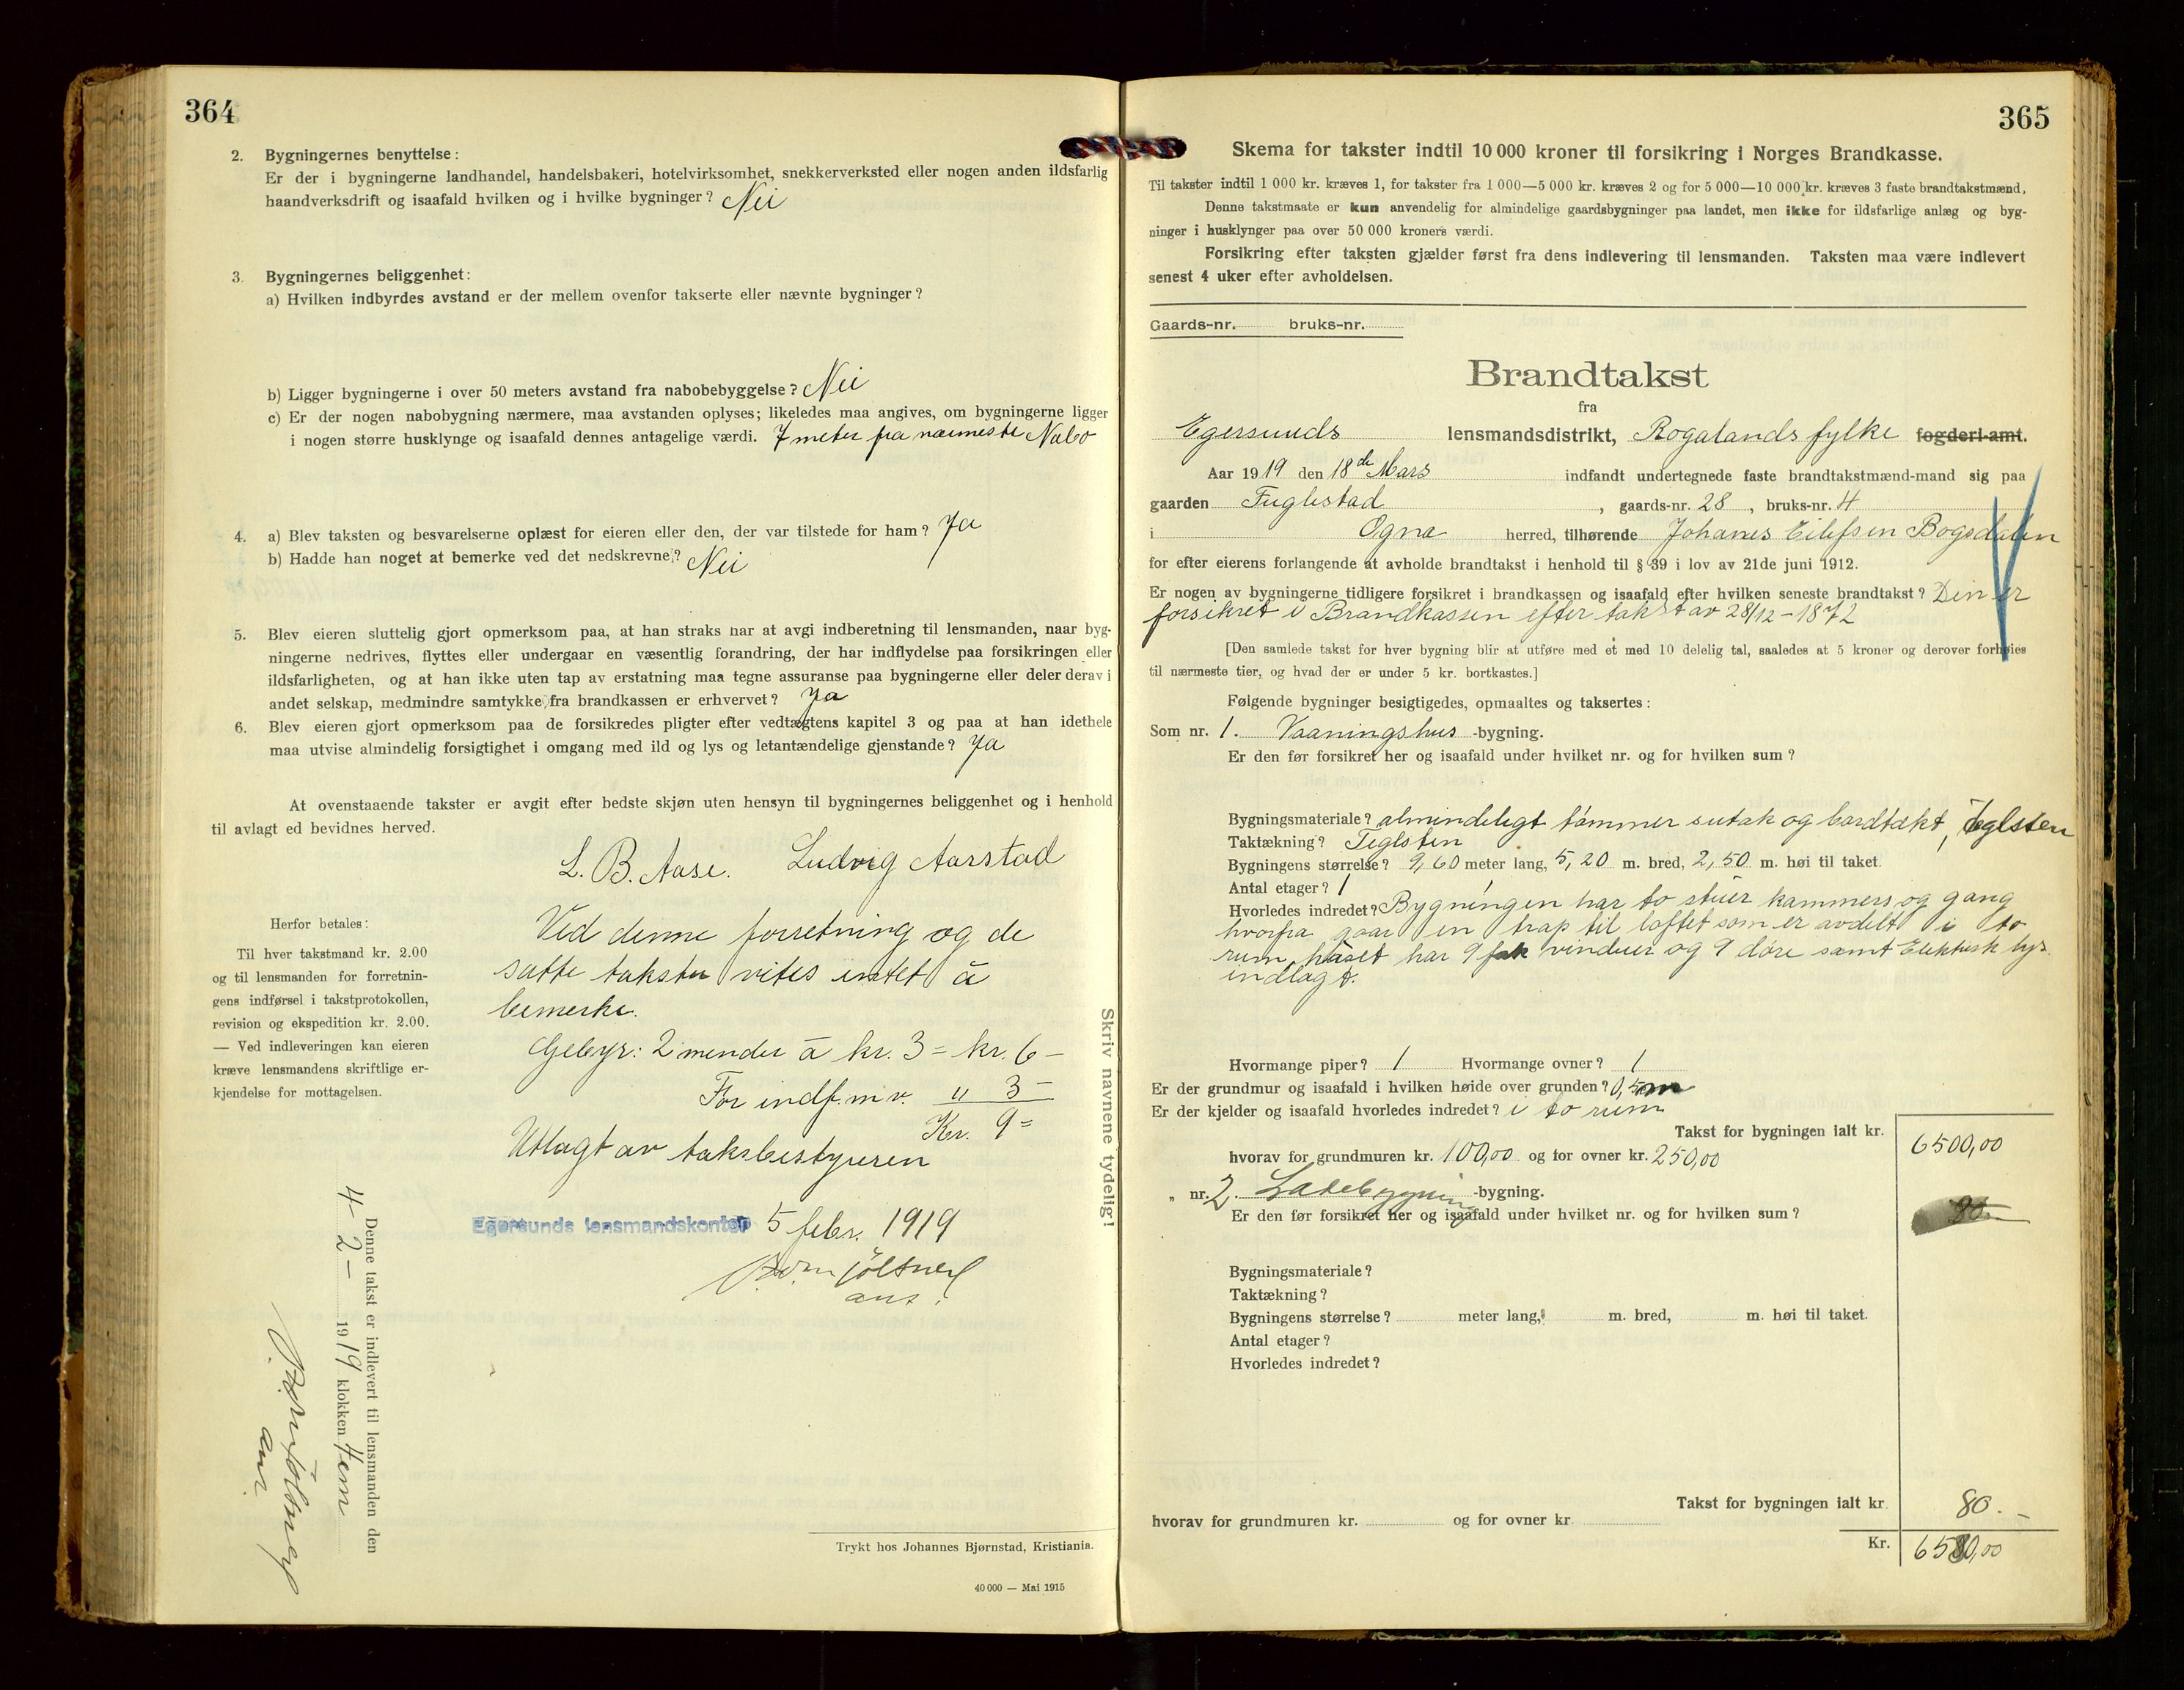 364
2. Bygningernes benyttelse:
Er der i bygningerne landhandel, handelsbakeri, hotelvirksomhet, snekkerverksted eller nogen anden ildsfarlig
haandverksdrift og isaafald hvilken og i hvilke bygninger? Nei
3. Bygningernes beliggenhet:
a) Hvilken indbyrdes avstand er der mellem ovenfor takserte eller nævnte bygninger?
b) Ligger bygningerne i over 50 meters avstand fra nabobebyggelse? Nei
c) Er der nogen nabobygning nærmere, maa avstanden oplyses; likeledes maa angives, om bygningerne ligger
i nogen større husklynge og isaafald dennes antagelige værdi. 7 meter fra nærmeste Nabo
4. a) Blev taksten og besvarelserne oplæst for eieren eller den, der var tilstede for ham? Ja
b) Hadde han noget at bemerke ved det nedskrevne? Nei
5. Blev eieren sluttelig gjort opmerksom paa, at han straks har at avgi indberetning til lensmanden, naar byg-
ningerne nedrives, flyttes eller undergaar en væsentlig forandring, der har indflydelse paa forsikringen eller
ildsfarligheten, og at han ikke uten tap av erstatning maa tegne assuranse paa bygningerne eller deler derav i
andet selskap, medmindre samtykke fra brandkassen er erhvervet? Ja
6. Blev eieren gjort opmerksom paa de forsikredes pligter efter vedtægtens kapitel 3 og paa at han idethele
maa utvise almindelig forsigtighet i omgang med ild og lys og letantændelige gjenstande? Ja
At ovenstaaende takster er avgit efter bedste skjøn uten hensyn til bygningernes beliggenhet og i henhold
til avlagt ed bevidnes herved.
L. B. Aase. Ludvig Aarstad
Herfor betales:
Til hver takstmand kr. 2.00
og til lensmanden for forretnin-
gens indførsel i takstprotokollen,
revision og ekspedition kr. 2.00.
— Ved indleveringen kan eieren
kræve lensmandens skriftlige er-
kjendelse for mottagelsen.
Ved denne forretning og de
satte takster vites intet å
bemerke.
Gebyr: 2 mender á kr. 3 = kr. 6 –
For indf. m v. " 3 –
Kr. 9 =
Utlagt av taksbestyreren
Egersunds lensmandskontor 5 febr. 1919
ans.
Skriv navnene tydelig!
Denne takst er indlevert til lensmanden den
4 – 2 – 1919 klokken 4 em
Trykt hos Johannes Bjørnstad, Kristiania.
40 000 — Mai 1915
365
Skema for takster indtil 10 000 kroner til forsikring i Norges Brandkasse.
Til takster indtil 1 000 kr. kræves 1, for takster fra 1 000—5 000 kr. kræves 2 og for 5 000—10 000 kr. kræves 3 faste brandtakstmænd.
Denne takstmaate er kun anvendelig for almindelige gaardsbygninger paa landet, men ikke for ildsfarlige anlæg og byg-
ninger i husklynger paa over 50 000 kroners værdi.
Forsikring efter taksten gjælder først fra dens indlevering til lensmanden. Taksten maa være indlevert
senest 4 uker efter avholdelsen.
Gaards-nr. bruks-nr.
Brandtakst
fra
Egersunds lensmandsdistrikt, Rogalands fylke fogderi-amt.
Aar 1919 den 18de Mars indfandt undertegnede faste brandtakstmænd-mand sig paa
gaarden Fuglestad , gaards-nr. 28 , bruks-nr. 4
i Ogna herred, tilhørende Johanes Eilefsen Bogsdalen
for efter eierens forlangende at avholde brandtakst i henhold til § 39 i lov av 21de juni 1912.
Er nogen av bygningerne tidligere forsikret i brandkassen og isaafald efter hvilken seneste brandtakst? Den er
forsikret i Brandkassen efter takst av 28/12 – 1872
[Den samlede takst for hver bygning blir at utføre med et med 10 delelig tal, saaledes at 5 kroner og derover forhøies
til nærmeste tier, og hvad der er under 5 kr. bortkastes.]
Følgende bygninger besigtigedes, opmaaltes og taksertes:
Som nr. 1. Vaaningshus -bygning.
Er den før forsikret her og isaafald under hvilket nr. og for hvilken sum?
Bygningsmateriale? almindeligt tømmer sutak og bordtækt, Teglsten
Taktækning? Teglsten
Bygningens størrelse? 9,60 meter lang, 5,20 m. bred, 2,50 m. høi til taket.
Antal etager? 1
Hvorledes indredet? Bygningen har to stuer kammers og gang
hvorfra gaar en trap til loftet som er avdelt i to
rum, huset har 9 fak vinduer og 9 döre samt Elektrisk lys
indlagt.
Hvormange piper? 1 Hvormange ovner? 1
Er der grundmur og isaafald i hvilken høide over grunden? 0,5 m
Er der kjelder og isaafald hvorledes indredet? i to rum
Takst for bygningen ialt kr. 6500,00
hvorav for grundmuren kr. 100,00 og for ovner kr. 250,00
„ nr. 2. Ladebygning -bygning.
Er den før forsikret her og isaafald under hvilket nr. og for hvilken sum?
80
Bygningsmateriale?
Taktækning?
Bygningens størrelse? meter lang, m. bred, m. høi til taket.
Antal etager?
Hvorledes indredet?
Takst for bygningen ialt kr. 80. –
hvorav for grundmuren kr. og for ovner kr.
Kr. 6580,00